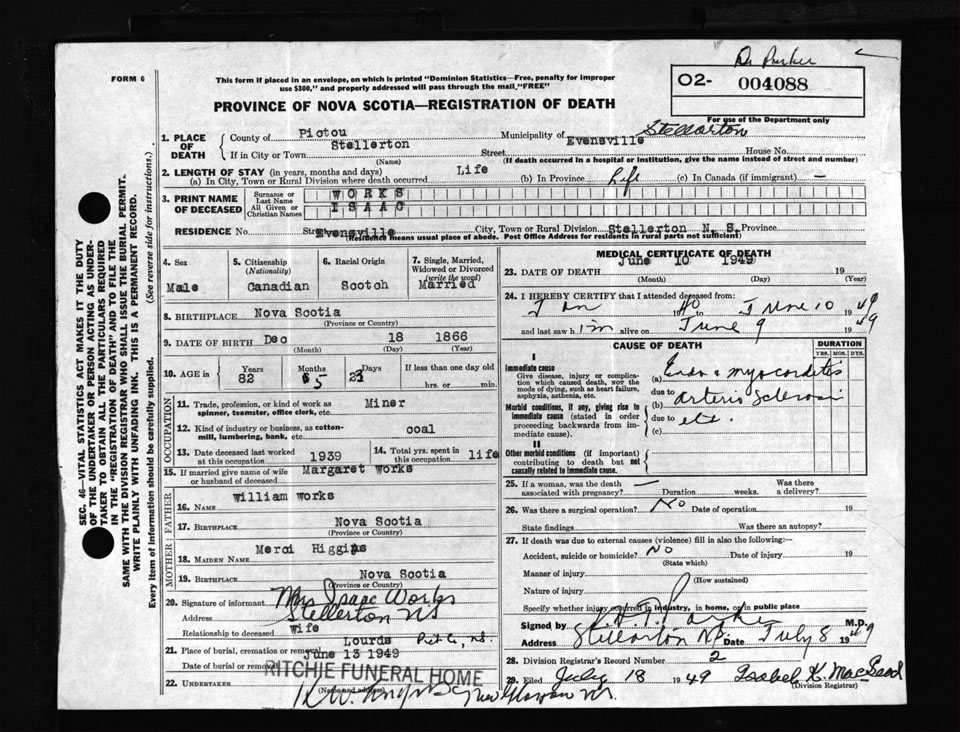 Dr Parker
FORM 6
This form if placed in an envelope, on which is printed "Dominion Statistics—Free, penalty for improper
use $300," and properly addressed will pass through the mail, "FREE"
O2- 004088
PROVINCE OF NOVA SCOTIA—REGISTRATION OF DEATH
For use of the Department only
1. PLACE OF DEATH
County of Pictou Municipality of Evensville Stellarton
If in City or Town Stellerton Street House No.
(Name) (If death occurred in a hospital or institution, give the name instead of street and number)
2. LENGTH OF STAY (in years, months and days)
(a) In City, Town or Rural Division where death occurred Life (b) In Province Life (c) In Canada (if immigrant) —
3. PRINT NAME OF DECEASED
Surname or Last Name WORKS
All Given or Christian Names ISAAC
RESIDENCE No. Street Evensville City, Town or Rural Division Stellerton N. S. Province
(Residence means usual place of abode. Post Office Address for residents in rural parts not sufficient)
4. Sex Male
5. Citizenship (Nationality) Canadian
6. Racial Origin Scotch
7. Single, Married, Widowed or Divorced (write the word) Married
8. BIRTHPLACE Nova Scotia
(Province or Country)
9. DATE OF BIRTH Dec 18 1866
(Month) (Day) (Year)
10. AGE in Years 82 Months 5 Days If less than one day old
hrs. or min.
OCCUPATION
11. Trade, profession, or kind of work as spinner, teamster, office clerk, etc. Miner
12. Kind of industry or business, as cotton-mill, lumbering, bank, etc. coal
13. Date deceased last worked at this occupation 1939
14. Total yrs. spent in this occupation life
15. If married give name of wife or husband of deceased Margaret Works
FATHER
16. NAME William Works
17. BIRTHPLACE Nova Scotia
MOTHER
18. MAIDEN NAME Merci Higgins
19. BIRTHPLACE Nova Scotia
(Province or Country)
20. Signature of informant Mrs Isaac Works
Address Stellerton NS
Relationship to deceased Wife
21. Place of burial, cremation or removal Lourds Pict Co, N.S.
Date of burial or removal June 13 1949
RITCHIE FUNERAL HOME
22. UNDERTAKER
(Name and Address) New Glasgow N.S.
MEDICAL CERTIFICATE OF DEATH
23. DATE OF DEATH June 10 1949 19
(Month) (Day) (Year)
24. I HEREBY CERTIFY that I attended deceased from:
Jan 1940 to June 10 1949
and last saw him alive on June 9 1949
CAUSE OF DEATH
DURATION
YRS. MOS. DYS.
I
Immediate cause
Give disease, injury or complication which caused death, NOT the mode of dying, such as heart failure, asphyxia, asthenia, etc.
(a) Endo & myocarditis
due to
Morbid conditions, if any, giving rise to immediate cause (stated in order proceeding backwards from immediate cause).
(b) arterio sclerosis
due to etc.
(c)
II
Other morbid conditions (if important) contributing to death but not causally related to immediate cause.
25. If a woman, was the death associated with pregnancy? — Duration weeks. Was there a delivery?
26. Was there a surgical operation? No Date of operation 19
State findings Was there an autopsy?
27. If death was due to external causes (violence) fill in also the following:—
Accident, suicide or homicide? No Date of injury 19
(State which)
Manner of injury
(How sustained)
Nature of injury
Specify whether injury occurred in industry, in home, or in public place
Signed by Parker M.D.
Address Stellarton N.S. Date July 8 1949
28. Division Registrar's Record Number 2
29. Filed July 18 1949 Isabel K. MacLeod
(Division Registrar)
SEC. 46—VITAL STATISTICS ACT MAKES IT THE DUTY
OF THE UNDERTAKER OR PERSON ACTING AS UNDER-
TAKER TO OBTAIN ALL THE PARTICULARS REQUIRED
IN THE "REGISTRATION OF DEATH" AND TO FILE THE
SAME WITH THE DIVISION REGISTRAR WHO SHALL ISSUE THE BURIAL PERMIT.
WRITE PLAINLY WITH UNFADING INK. THIS IS A PERMANENT RECORD.
Every item of information should be carefully supplied. (See reverse side for instructions.)